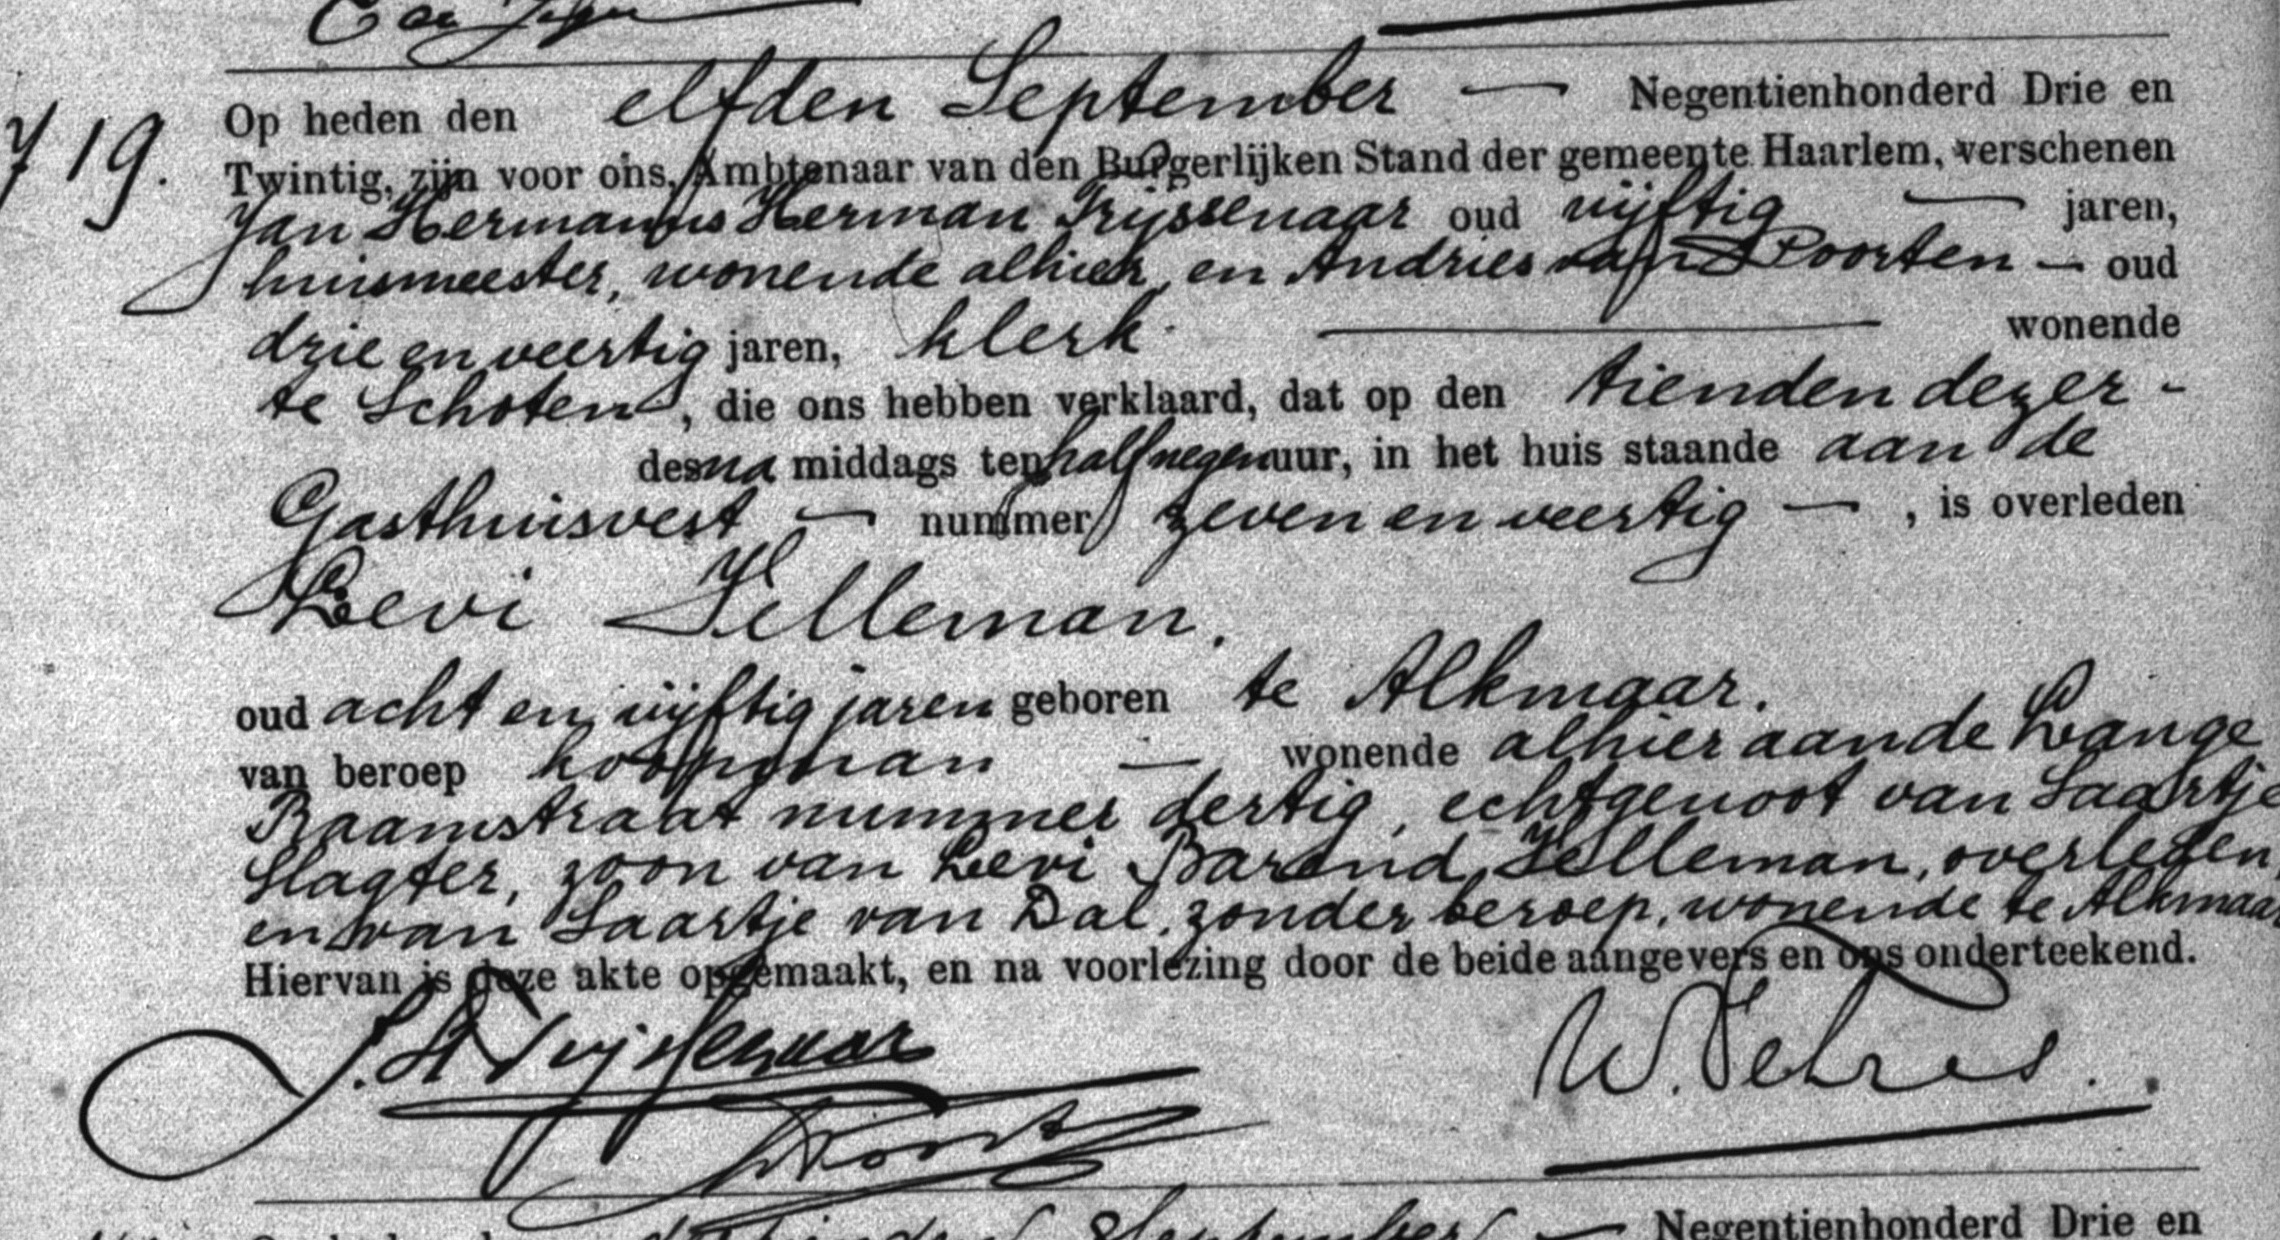 719.
Op heden den elfden September — Negentienhonderd Drie en
Twintig, zijn voor ons, Ambtenaar van den Burgerlijken Stand der gemeente Haarlem, verschenen
Jan Hermanus Herman Trijssenaar oud vijftig — jaren,
huismeester, wonende alhier, en Andries van Poorten — oud
drie en veertig jaren, klerk — wonende
te Schoten, die ons hebben verklaard, dat op den tienden dezer -
des na middags ten half negen uur, in het huis staande aan de
Gasthuisvest — nummer zeven en veertig — , is overleden
Levi Jelleman.
oud acht en vijftig jaren geboren te Alkmaar.
van beroep koopman — wonende alhier aan de Lange
Raamstraat nummer dertig, echtgenoot van Saartje
Slagter, zoon van Levi Barend Jelleman, overleden,
en van Saartje van Dal, zonder beroep, wonende te Alkmaar
Hiervan is deze akte opgemaakt, en na voorlezing door de beide aangevers en ons onderteekend.
September — Negentienhonderd Drie en